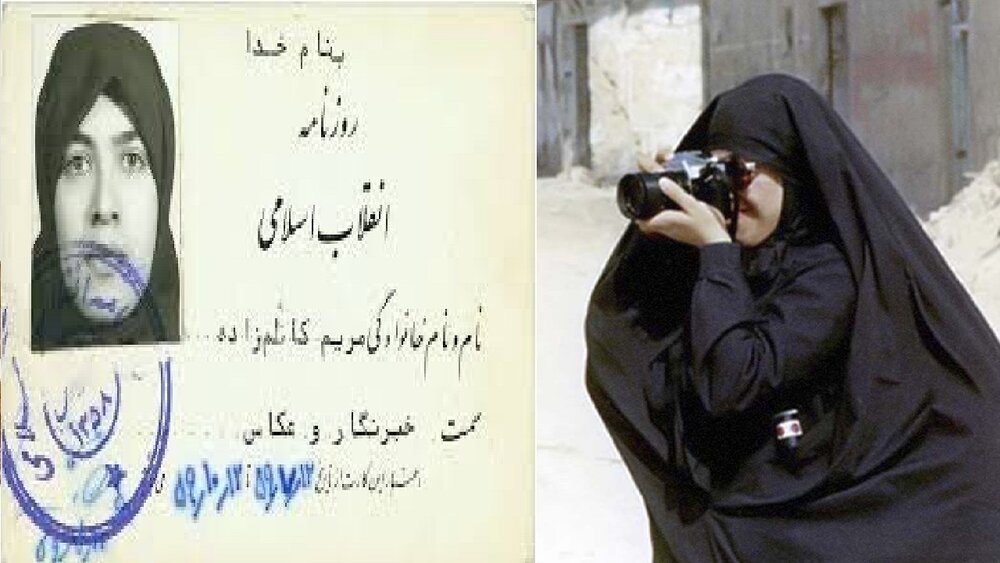 بنام خدا
روزنامه
انقلاب اسلامی
نام و نام خانوادگی مریم کاظم‌زاده ...
سمت خبرنگار و عکاس ........
اعتبار این کارت از تاریخ
۱۳۵۸